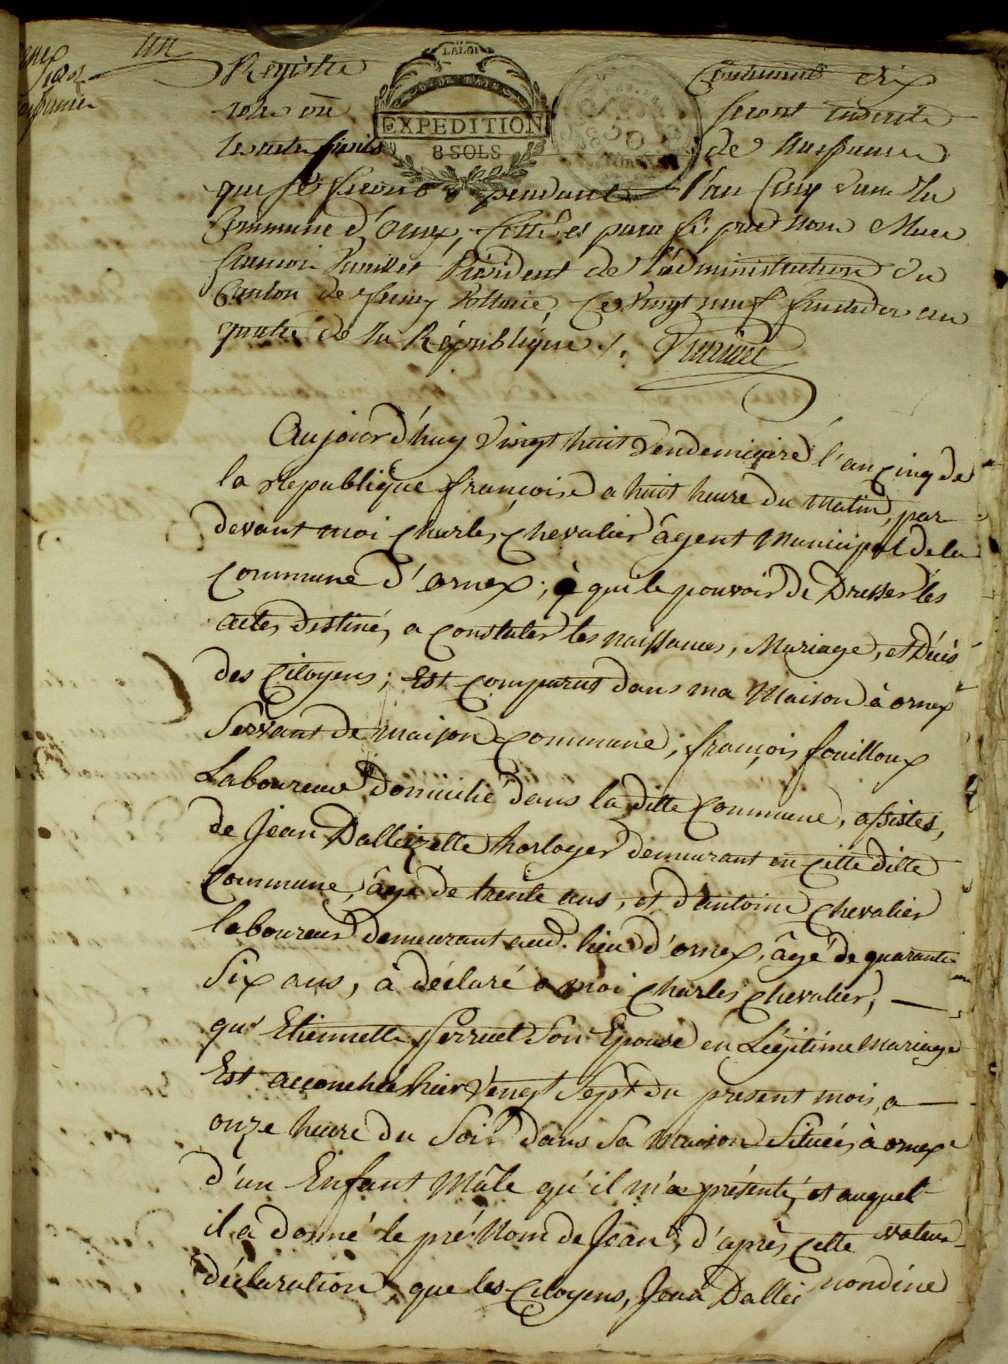 un
Registre contenant dix
LA LOI
EXPEDITION
8 SOLS
seront inscrits
de naissance
qui se feront pendant l'an Cinq dans la
Commune d'Ornex, Cotté et para fé par nous Marc
francois President de l'administration du
Canton de ferney Voltaire, Ce vingt neuf fructidor an
quatre de la République ./.
Aujourd'huy Vingt huit Vendemiaire l'an Cinq de
la Republique françoise a huit heure du Matin, par
devant moi Charles Chevalier âgent Municipal de la
Commune d'Ornex ; à qui le pouvoir de Dresser les
actes destinés a Constater les naissances, Mariage, et Décés
des Citoyens ; Est Comparut dans ma Maison à ornex
Servant de maison Commune ; françois fouilloux
Laboureur domicilié dans la ditte Commune, assistes,
de Jean Dallei horloger demeurant en cette ditte
Commune, âgé de trente ans, et d'antoine Chevalier
laboureur demeurant aud. lieu d'ornex, âgé de quarante
Six ans, à déclaré a moi Charles Chevalier, —
qu' Etiennette Perruet Son Epouse en Légitime Mariage
Est accouchée hier Vingt Sept du present mois, a —
onze heure du Soir dans Sa Maison Située à ornex
d'un Enfant Mâle qu'il m'a présenté, et auquel
il a donné le pré-Nom de Jean ; d'après, cette
déclaration que les Citoyens, Jean Dallei